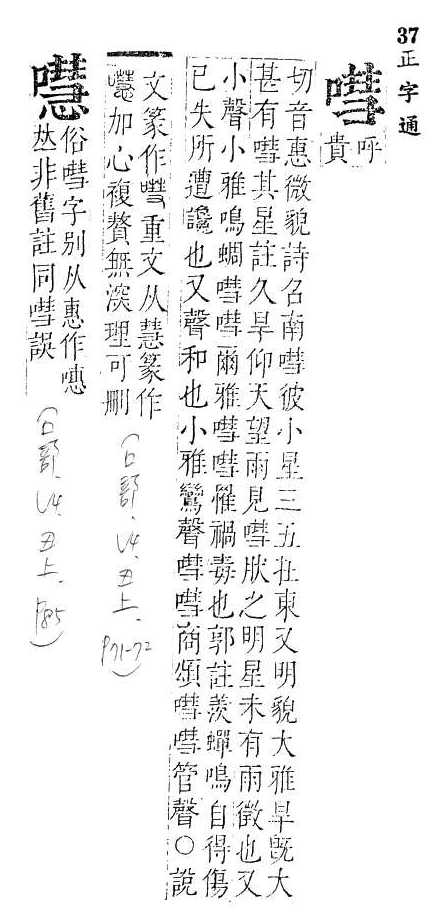 37正字通
嘒
呼
貴
切音惠微貌詩召南嘒彼小星三五在東又明貌大雅旱既大
甚有嘒其星註久旱仰天望雨見嘒狀之明星未有雨徵也又
小聲小雅鳴蜩嘒嘒爾雅嘒嘒罹禍毒也郭註羨蟬鳴自得傷
已失所遭讒也又聲和也小雅鸞聲嘒嘒商頌嘒嘒管聲○說
文篆作嘒重文从慧篆作
嚖加心複贅無深理可刪
(口部、U4、丑上、P71-72)
嚖
俗嘒字別从惠作
𠀤非舊註同嘒誤
(口部、U4、丑上、P85)